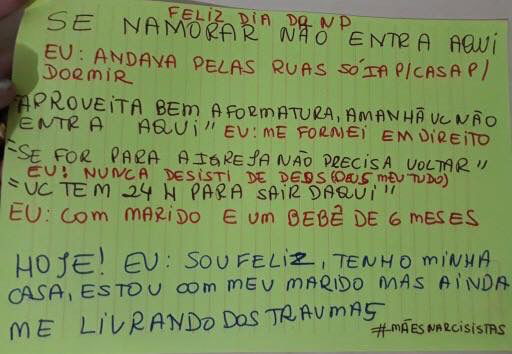 FELIZ DIA DO ND
SE NAMORAR NÃO ENTRA AQUI
EU: ANDAVA PELAS RUAS SÓ IA P/CASA P/
DORMIR
"APROVEITA BEM A FORMATURA, AMANHÃ VC NÃO
ENTRA AQUI" EU: ME FORMEI EM DIREITO
"SE FOR PARA A IGREJA NÃO PRECISA VOLTAR"
EU: NUNCA DESISTI DE DEUS (DEUS MEU TUDO)
"VC TEM 24 H PARA SAIR DAQUI"
EU: COM MARIDO E UM BEBÊ DE 6 MESES
HOJE! EU: SOU FELIZ, TENHO MINHA
CASA, ESTOU COM MEU MARIDO MAS AINDA
ME LIVRANDO DOS TRAUMAS
#MÃESNARCISISTAS